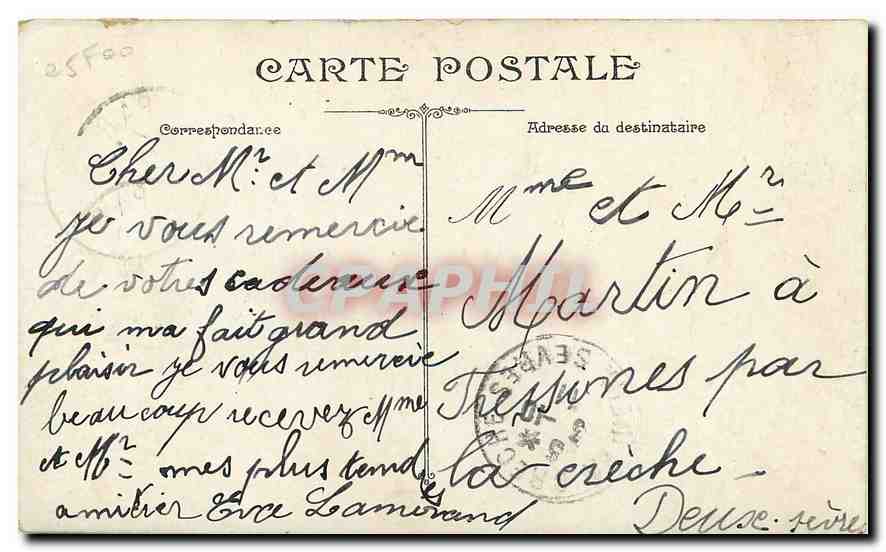 25F00
CARTE POSTALE
Correspondance
Cher Mr. et Mm
je vous remercie
de votres cadeaux
qui ma fait grand
plaisir je vous remercie
beaucoup recevez Mme
et Mr mes plus tend
es
amitier Eva Lamorand
Adresse du destinataire
Mme et Mr
Martin à
Tressones par
la crèche.
Deux-sèvres
CPAPHIL
SEVRES